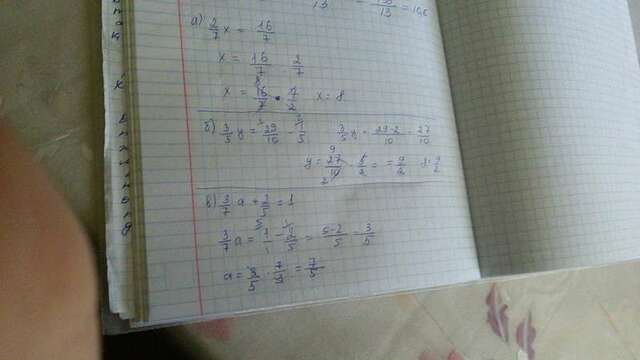 13 13 = 10,6
а) 2/7 x = 16/7
x = 16/7 : 2/7
x = 16/7 · 7/2 x = 8
б) 3/5 y = 29/10 - 1/5 3/5 y = 29-2/10 = 27/10
y = 27/10 · 5/2 = 9/2
в) 3/7 a + 2/5 = 1
3/7 a = 1/1 - 2/5 = 5-2/5 = 3/5
a = 3/5 · 7/3 = 7/5